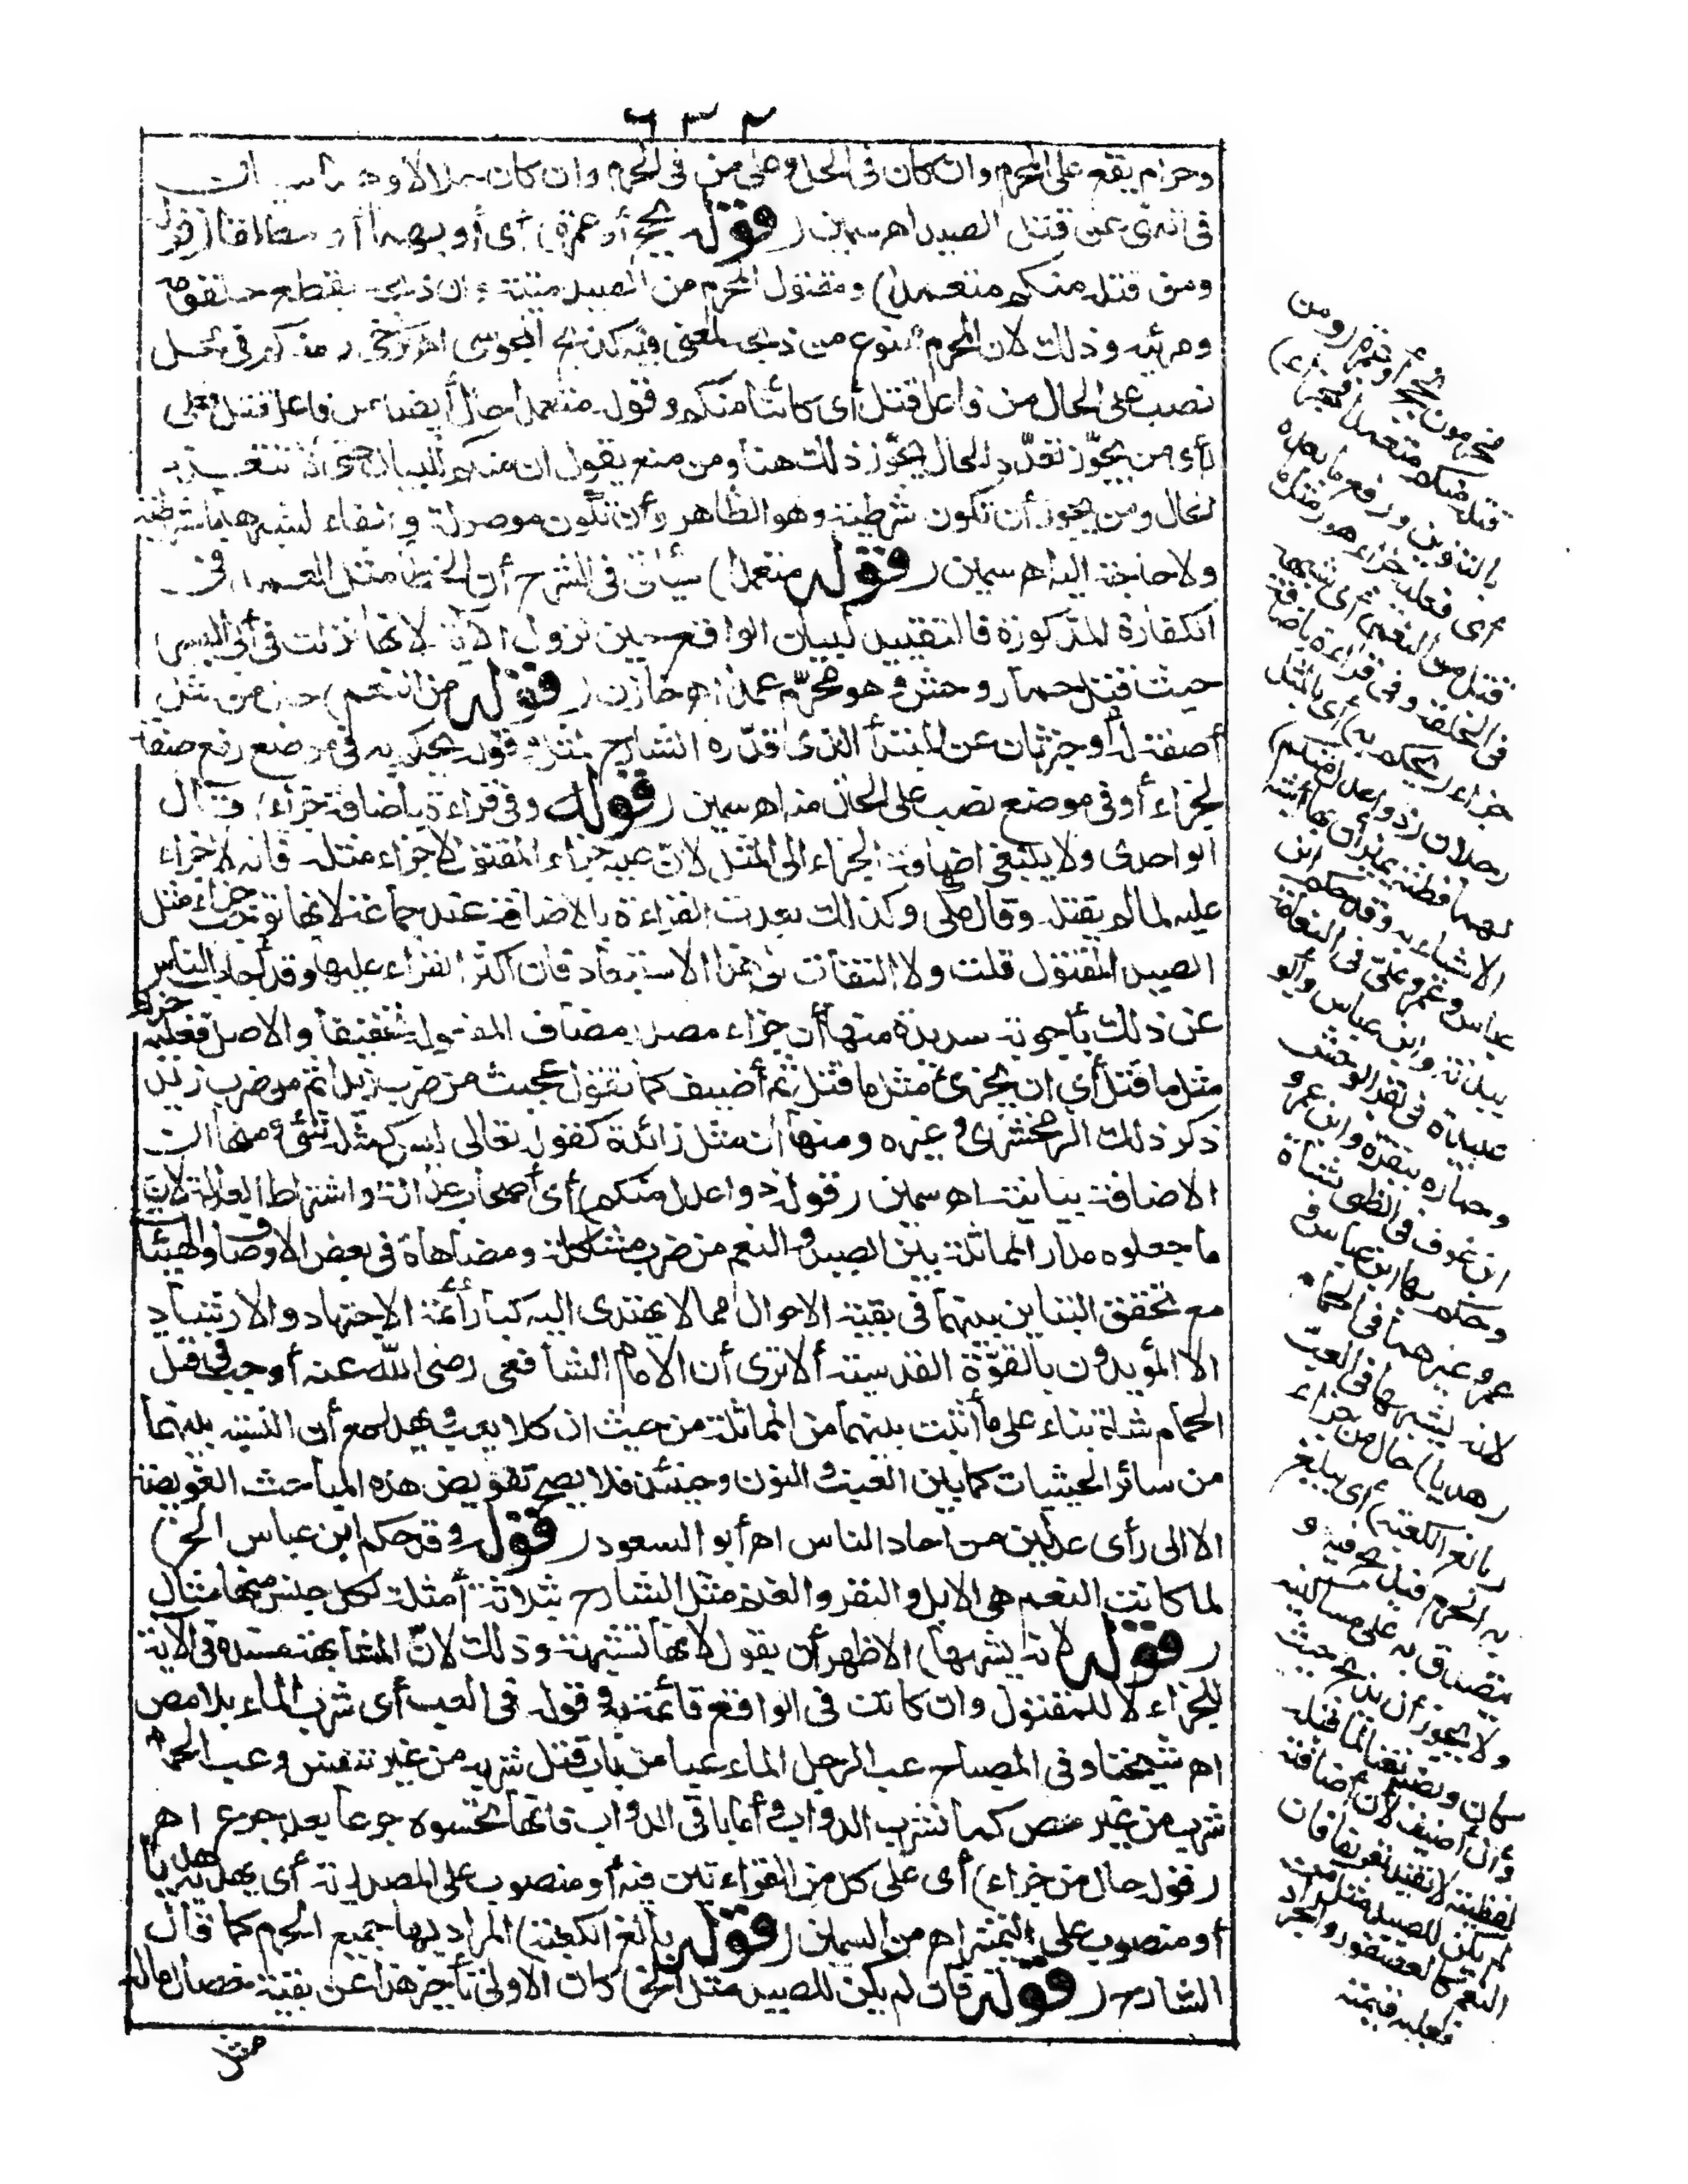 ٦٣٢
وحرام يقع على المحرم وان كان في الحل وعلى من في الحرم وان كان حلالا وهما سيان
في النهى عن قتل الصيد اهـ سمين (قوله بحج أو عمرة) أى أو بهما أو مطلقا (قوله
ومن قتله منكم متعمدا) ومقتول المحرم من الصيد ميتة وان ذبح بقطع حلقومه
ومريئه وذلك لان المحرم ممنوع من ذبحه لمعنى فيه كذبح المجوسى اهـ كرخى ومنكم في محل
نصب على الحال من فاعل قتل أى كائنا منكم وقوله متعمدا حال أيضا من فاعل قتل فعلى
رأى من يجوّز تعدّد الحال يجوّز ذلك هنا ومن منع يقول ان منكم للبيان حتى لا تتعدد
الحال ومن يجوز أن تكون شرطية وهو الظاهر وأن تكون موصولة والفاء لشبهها بالشرطية
ولا حاجة اليه اهـ سمين (قوله متعمدا) سيأتى في الشرح أن الخطأ مثل العمد في
الكفارة المذكورة فالتقييد لبيان الواقع حين نزول الآية لانها نزلت في أبى اليسر
حيث قتل حمار وحش وهو محرّم عمدا اهـ خازن (قوله من النعم) حال من مثل
أو صفة له أو خبر ثان عن المبتدأ الذى قدّره الشارح وقوله يحكم به في موضع رفع صفة
لجزاء أو في موضع نصب على الحال منه اهـ سمين (قوله وفي قراءة باضافة جزاء) قال
الواحدى ولا ينبغى اضافة الجزاء الى المثل لان عليه جزاء المقتول لا جزاء مثله فانه لا جزاء
عليه لما لم يقتله وقال مكى وكذلك بعدت القراءة بالاضافة عند جماعة لانها توجب جزاء مثل
الصيد المقتول قلت ولا التفات الى هذا الاستبعاد فان أكثر القراء عليها وقد أجاب الناس
عن ذلك بأجوبة سديدة منها أن جزاء مصدر مضاف لمفعوله تخفيفا والاصل فعليه جزاء
مثل ما قتل أى ان يجزى مثل ما قتل ثم أضيف كما تقول عجبت من ضرب زيدا ثم من ضرب زيد
ذكر ذلك الزمخشرى وغيره ومنها أن مثل زائدة كقوله تعالى ليس كمثله شئ ومنها أن
الاضافة بيانية اهـ سمين (قوله ذوا عدل منكم) أى أصحاب عدالة واشتراط العدالة لان
ما جعلوه مدار المماثلة بين الصيد والنعم من ضرب مشاكلة ومضاهاة في بعض الاوصاف والهيئات
مع تحقق التباين بينهما في بقية الاحوال مما لا يهتدى اليه كبار أئمة الاجتهاد والارتشاد
الا المؤيدون بالقوّة القدسية ألا ترى أن الامام الشافعى رضى الله عنه أوجب في قتل
الحمام شاة بناء على ما أثبت بينهما من المماثلة من حيث ان كلا يعب ويهدر مع أن النسبة بينهما
من سائر الحيثيات كما بين الضب والنون وحينئذ فلا يصح تفويض هذه المباحث العويصة
الا الى رأى عدلين من احاد الناس اهـ أبو السعود (قوله وقد حكم ابن عباس الخ)
لما كانت النعم هى الابل والبقر والغنم مثل الشارح بثلاثة أمثلة لكل جنس منها مثال
(قوله لانه يشبهها) الاظهر أن يقول لانها تشبهه وذلك لانّ المشابهة مسندة في الآية
للجزاء لا للمقتول وان كانت في الواقع قائمة به وقوله في العب أى شرب الماء بلا مص
اهـ شيخنا وفي المصباح عب الرجل الماء عبا من باب قتل شربه من غير تنفس وعب الحمام
شرب من غير مص كما تشرب الدواب وأما باقى الدواب فانها تحسوه جرعا بعد جرع اهـ
(قوله حال من جزاء) أى على كل من القراءتين فيه أو منصوب على المصدرية أى يهديه هديا
أو منصوب على التمييز اهـ من السمين (قوله بالغ الكعبة) المراد بها جميع الحرم كما قال
الشارح (قوله فان لم يكن للصيد مثل الخ) كان الاولى تأخير هذا عن بقية خصال ماله
مثل
محرمون بحج أو عمرة (ومن
قتله منكم متعمدا فجزاء)
بالتنوين ورفع ما بعده
أى فعليه جزاء هو (مثل ما
قتل من النعم) أى شبهه
في الخلقة وفي قراءة باضافة
جزاء (يحكم به) أى بالمثل
رجلان (ذوا عدل منكم)
لهما فطنة يميزان بها أشبه
الاشياء به وقد حكم ابن
عباس وعمر وعلىّ في النعامة
ببدنة وابن عباس وأبو
عبيدة في بقر الوحش
وحماره ببقرة وابن عمر و
ابن عوف في الظبى بشاة
وحكم بها ابن عباس و
عمر وغيرهما في الحمام
لانه يشبهها في العب
(هديا) حال من جزاء
(بالغ الكعبة) أى يبلغ
به الحرم فيذبح فيه و
يتصدق به على مساكينه
ولا يجوز أن يذبح حيث
كان ونصبه نعتا لما قبله
وان أضيف لان اضافته
لفظية لا تفيد تعريفا فان
لم يكن للصيد مثل من
النعم كالعصفور والجراد
فعليه قيمته